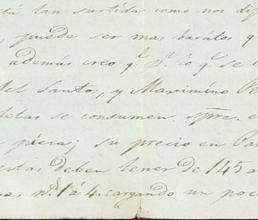 tá tan surtida como nos di
puede ser mas baratos q
además creo q.e p.a lo q.e se
los Santos, y Maximino
se consumen spre. e
piera; su precio en Pa
estas deben tener de 145 a
nos. 1 á 4. cargando un poc